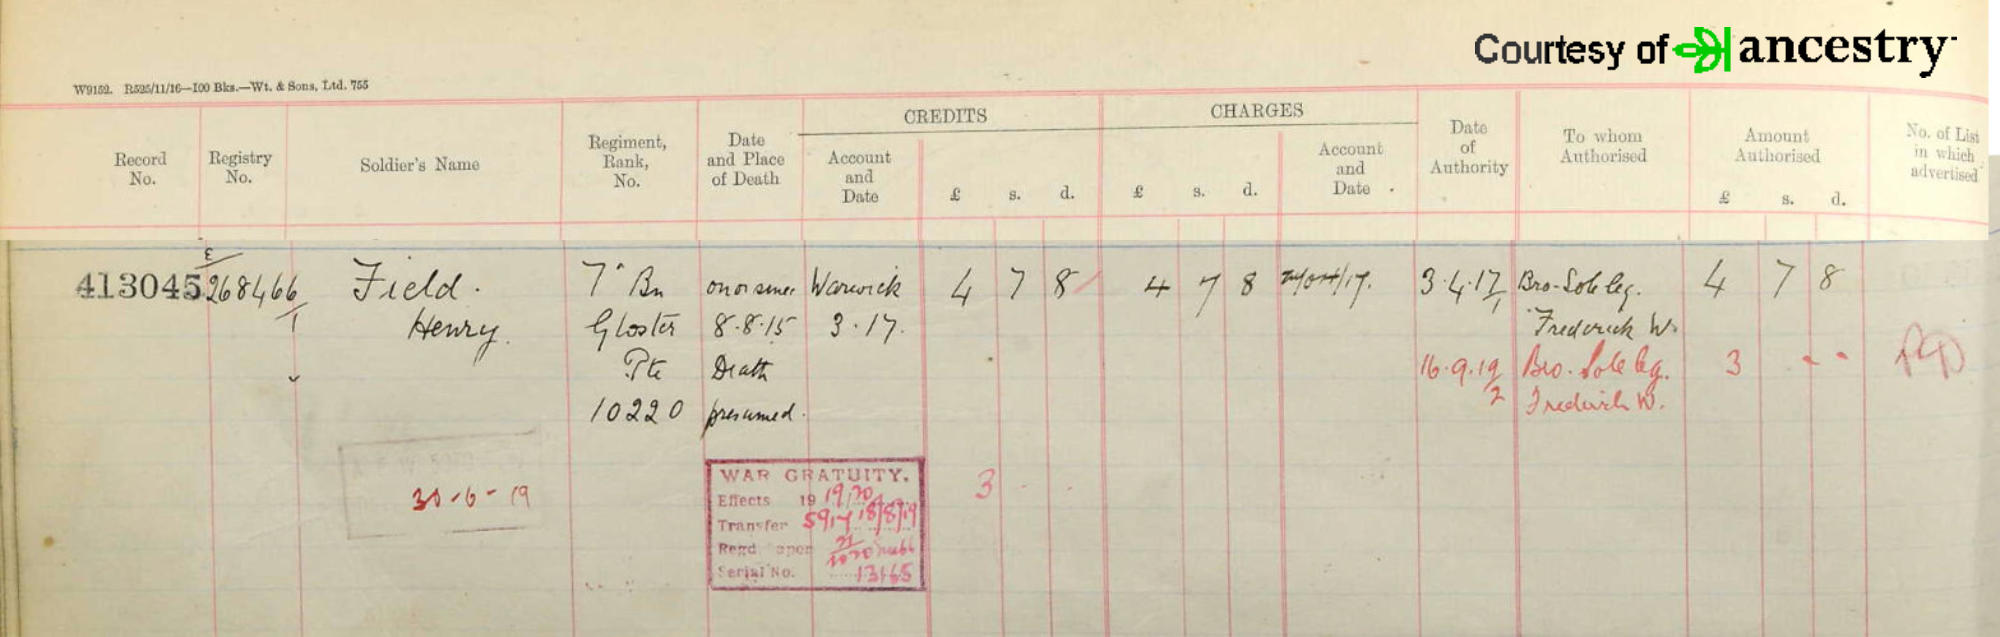 Courtesy of ancestry
W9152. R525/11/16—100 Bks.—Wt. & Sons, Ltd. 755
CREDITS CHARGES
Record No.
Registry No.
Soldier's Name
Regiment, Rank, No.
Date and Place of Death
Account and Date
£ s. d.
£ s. d.
Account and Date
Date of Authority
To whom Authorised
Amount Authorised
£ s. d.
No. of List in which advertised
413045 E/268466/1 Field. 7" Bn on or since Warwick 4 7 8 4 7 8 3.4.17/1 Bro-Sole leg. 4 7 8
Henry. Gloster 8.8.15 3.17. Frederick W.
Pte Death 16.9.19/2 Bro. Sole leg. 3 - -
10220 presumed. Frederick W.
WAR GRATUITY.
30-6-19 Effects 1919/20 3 - -
Transfer 18/8/19
Regd. Paper
Serial No. 13165